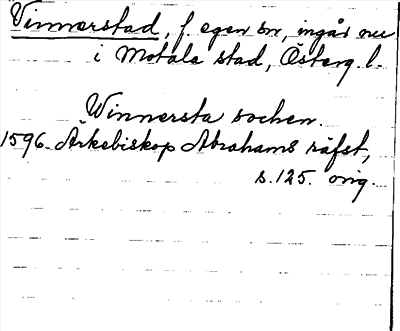 Vinnerstad, f. egen sn, ingår nu
i Motala stad, Österg. l.
Winnersta sochen.
1596. Ärkebiskop Abrahams räfst,
s. 125. orig.